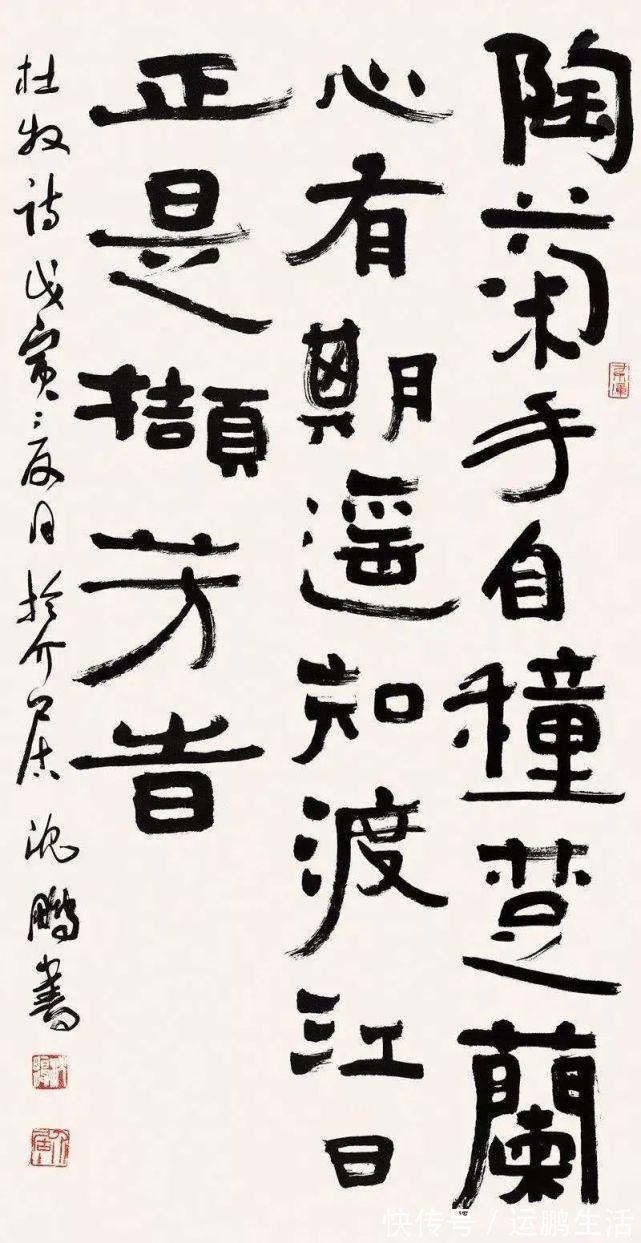 陶菊手自穜楚蘭
心有期遥知渡江日
正是擷芳旹
杜牧诗戊寅之夏月於介居沈鹏書
快传号 / 运鹏生活